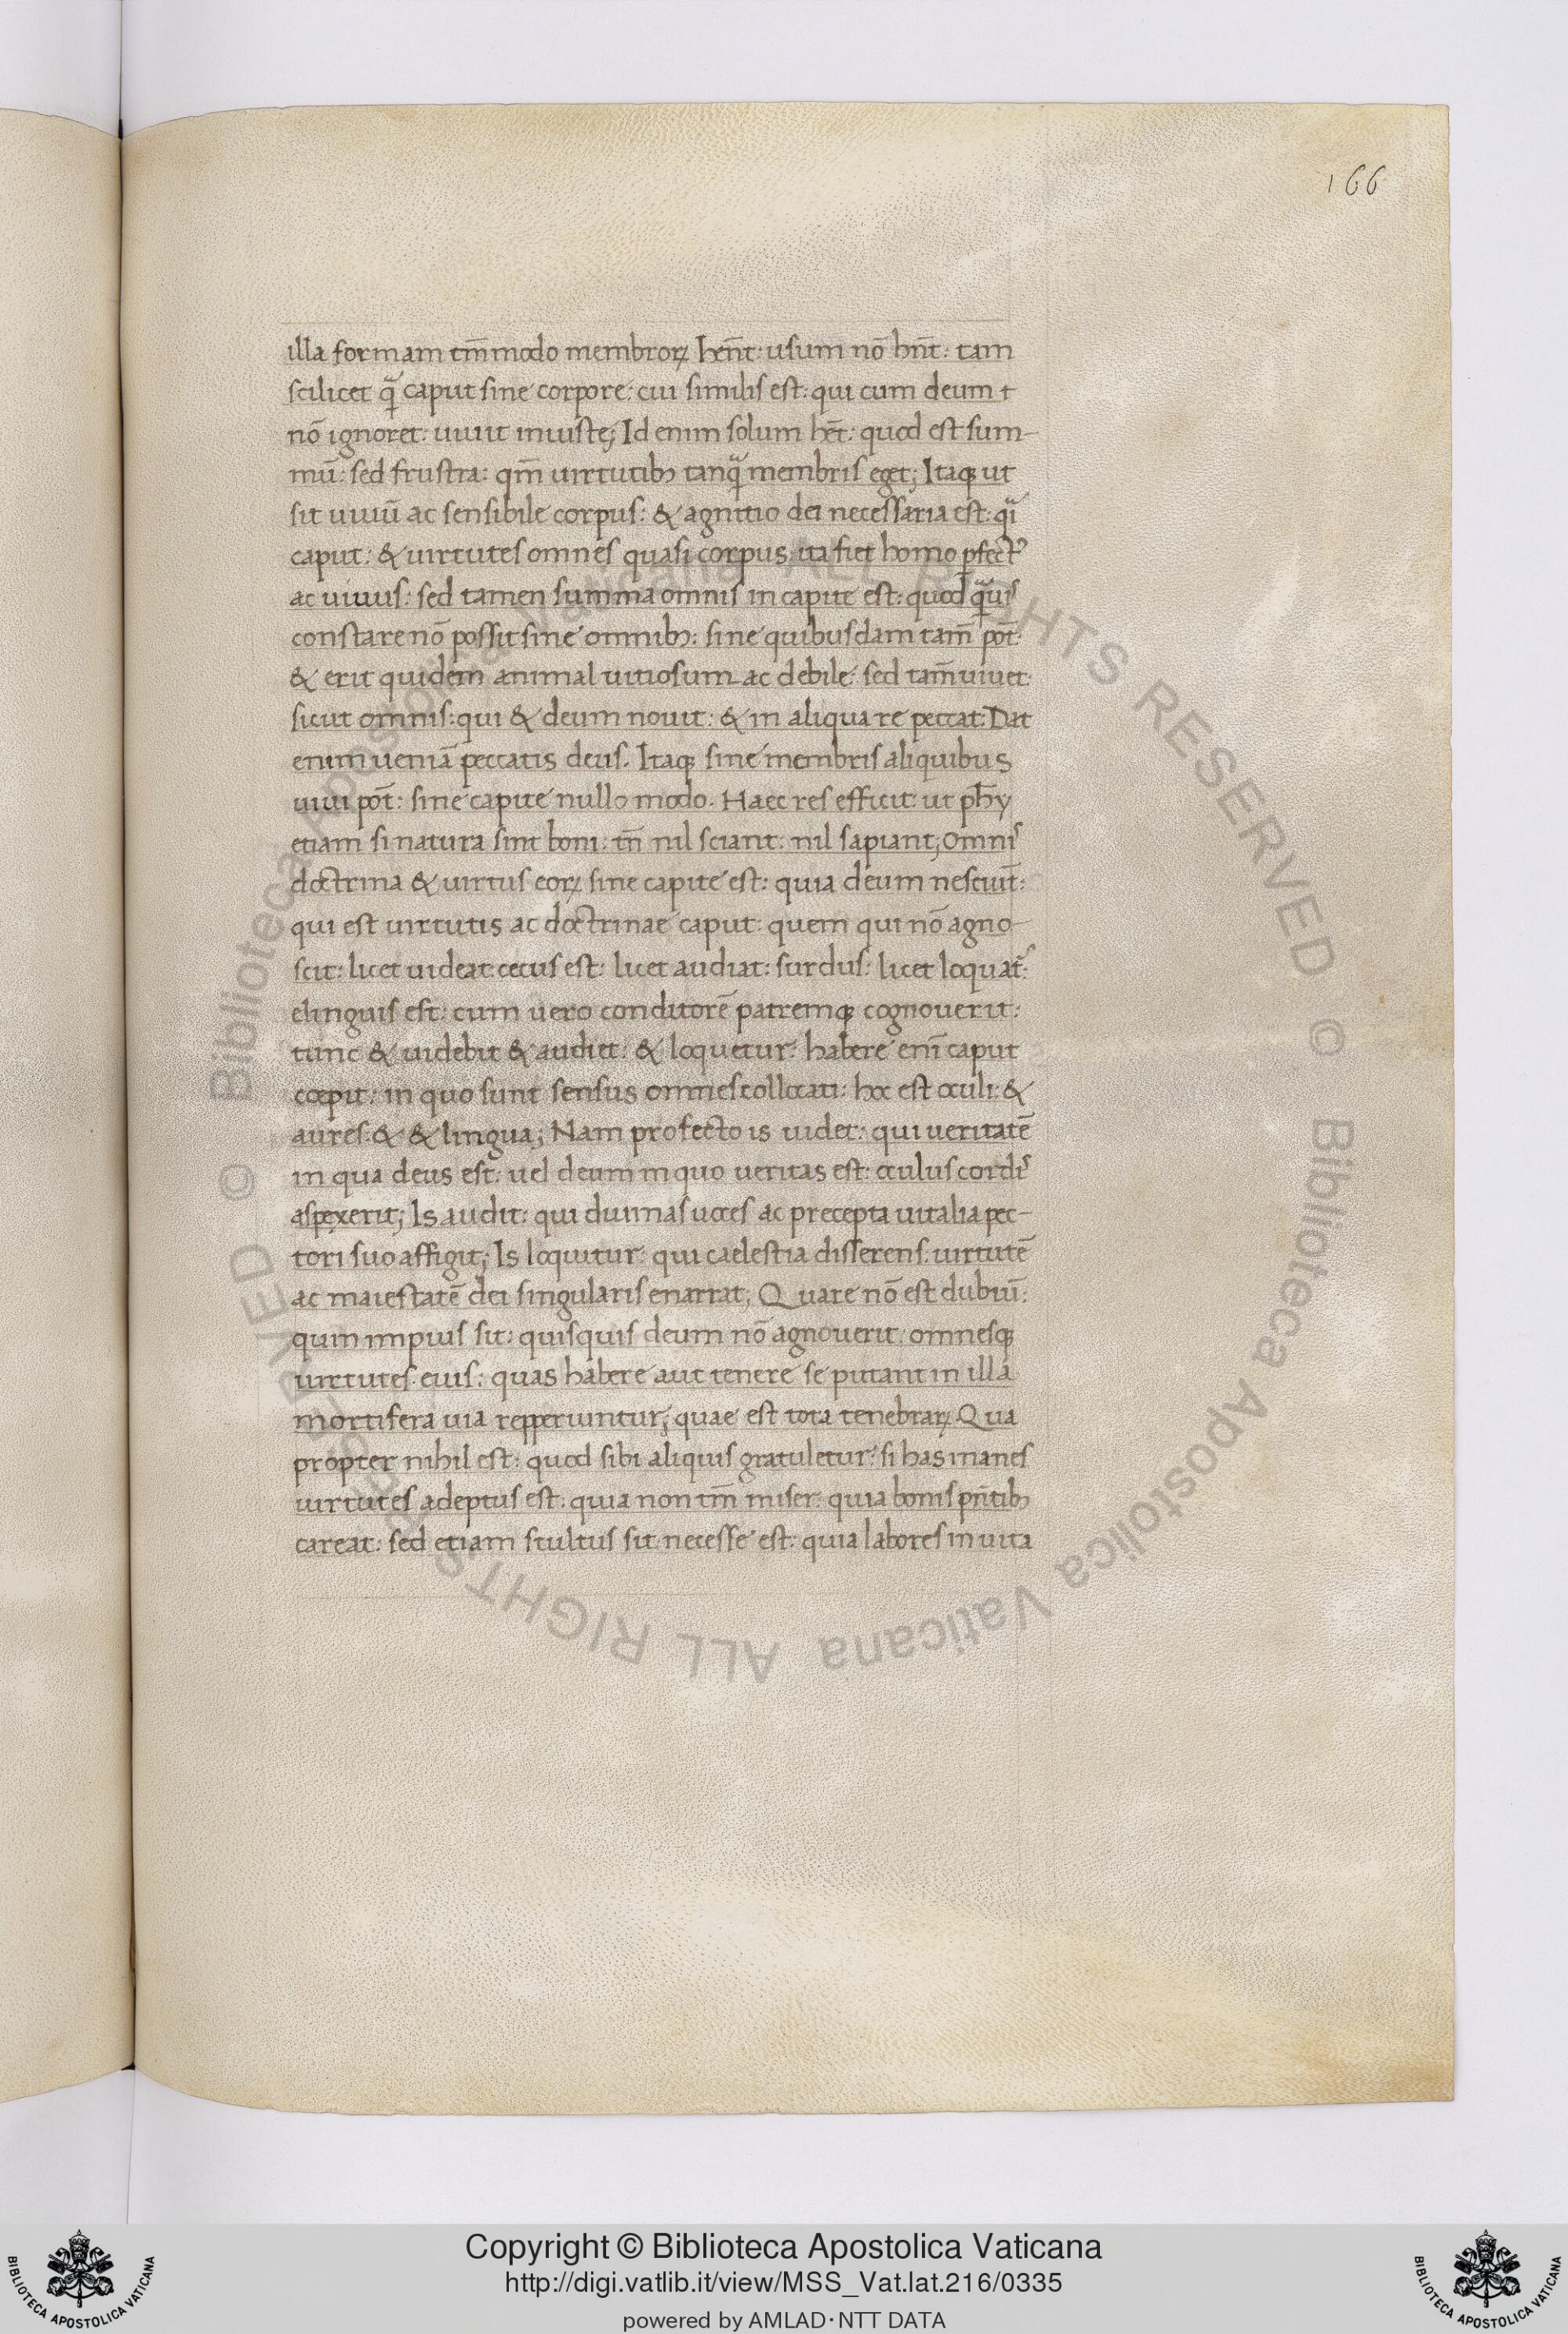 166
illa formam tm̄modo membroꝝ hēnt: usum nō hn̄t: tam
scilicet qͣ̄ caput sine corpore: cui similis est: qui cum deum t
nō ignoret: uiuit iniuste; Id enim solum hēt: quod est sum-
mū: sed frustra: qm̄ uirtutibꝫ tanqͣ̄ membris eget; Itaqꝫ ut
sit uiuū ac sensibile corpus: & agnitio dei necessaria est: qͣi
caput: & uirtutes omnes quasi corpus ita fiet homo ꝑfectꝰ
ac uiuus: sed tamen summa omnis in capite est: quod qͣ̄uis
constare nō possit sine omnibꝫ: sine quibusdam tam̄ pōt:
& erit quidem animal uitiosum ac debile: sed tam̄ uiuet:
sicut omnis: qui & deum nouit: & in aliqua re peccat: Dat
enim ueniā peccatis deus. Itaqꝫ sine membris aliquibus
uiui pōt: sine capite nullo modo. Haec res efficit: ut phȳ
etiam si natura sint boni: tn̄ nil sciant: nil sapiant; Omnis
doctrina & uirtus eoꝝ sine capite est: quia deum nesciūt:
qui est uirtutis ac doctrinae caput: quem qui nō agno-
scit: licet uideat: cecus est: licet audiat: surdus: licet loquat᷑:
elinguis est: cum uero conditorē patremqꝫ cognouerit:
tunc & uidebit & audiet: & loquetur: habere enī caput
coepit: in quo sunt sensus omnes collocati: hoc est oculi: &
aures: & & lingua; Nam profecto is uidet: qui ueritatē
in qua deus est: uel deum in quo ueritas est: oculus cordis
aspexerit; Is audit: qui diuinas uoces ac precepta uitalia pec-
tori suo affigit; Is loquitur: qui caelestia disserens: uirtutē
ac maiestatē dei singularis enarrat; Quare nō est dubiū:
quin impius sit: quisquis deum nō agnouerit: omnesqꝫ
uirtutes eius: quas habere aut tenere se putant in illa
mortifera uia repperiuntur; quae est tota tenebraꝝ Qua
propter nihil est: quod sibi aliquis gratuletur: si has inanes
uirtutes adeptus est: quia non tm̄ miser: quia bonis pn̄tibꝫ
careat: sed etiam stultus sit necesse est: quia labores in uita
Copyright © Biblioteca Apostolica Vaticana
http://digi.vatlib.it/view/MSS_Vat.lat.216/0335
powered by AMLAD·NTT DATA
BIBLIOTECA APOSTOLICA VATICANA
BIBLIOTECA APOSTOLICA VATICANA
© Biblioteca Apostolica Vaticana ALL RIGHTS RESERVED © Biblioteca Apostolica Vaticana ALL RIGHTS RESERVED